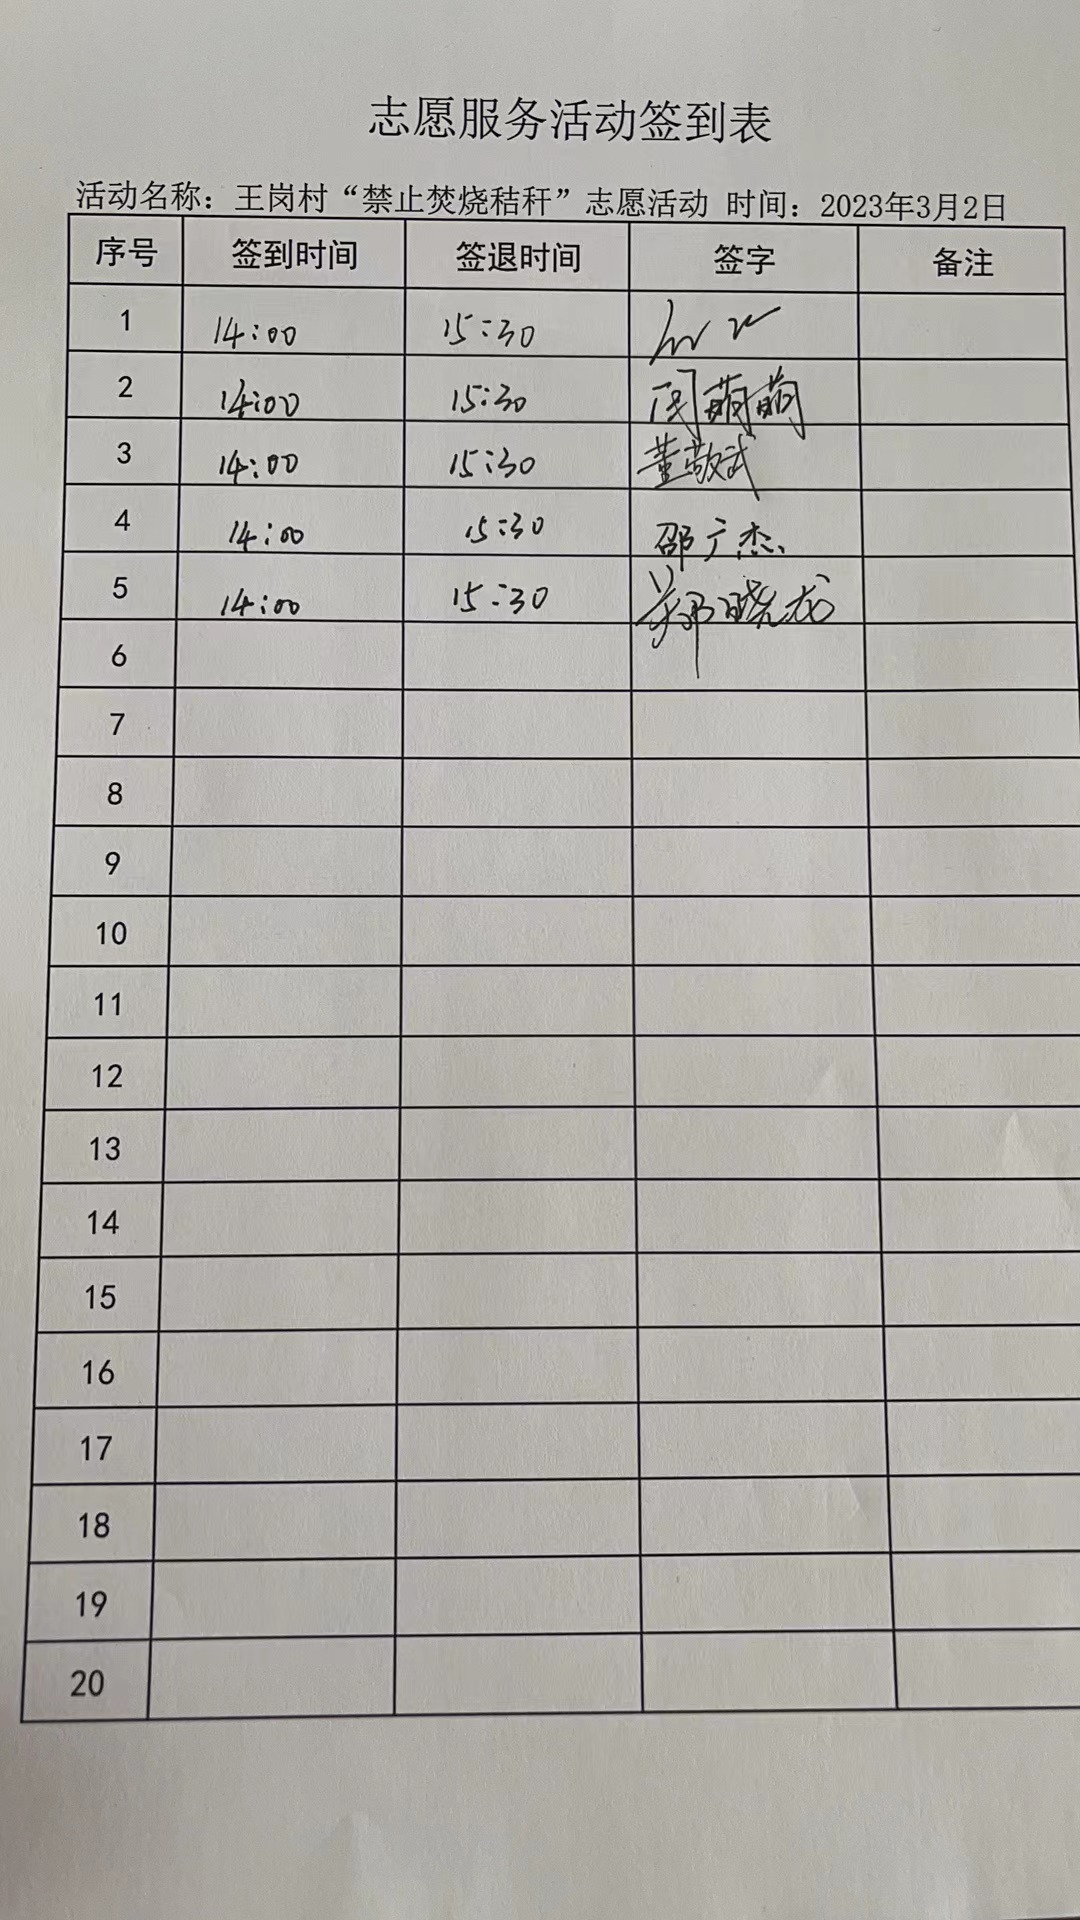 志愿服务活动签到表
活动名称：王岗村“禁止焚烧秸秆”志愿活动 时间：2023年3月2日
序号 签到时间 签退时间 签字 备注
1 14:00 15:30
2 14:00 15:30 闵萌萌
3 14:00 15:30 董敬武
4 14:00 15:30 邵广杰
5 14:00 15:30 郑晓龙
6
7
8
9
10
11
12
13
14
15
16
17
18
19
20